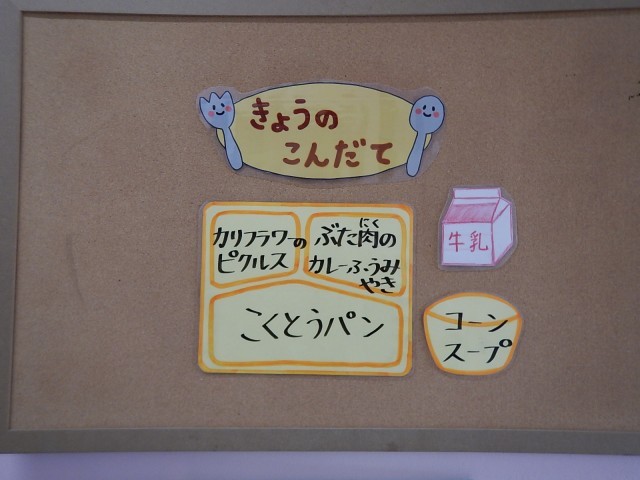 きょうの
こんだて
カリフラワーの
ピクルス
ぶた肉の
にく
カレーふうみ
やき
こくとうパン
牛乳
コーン
スープ